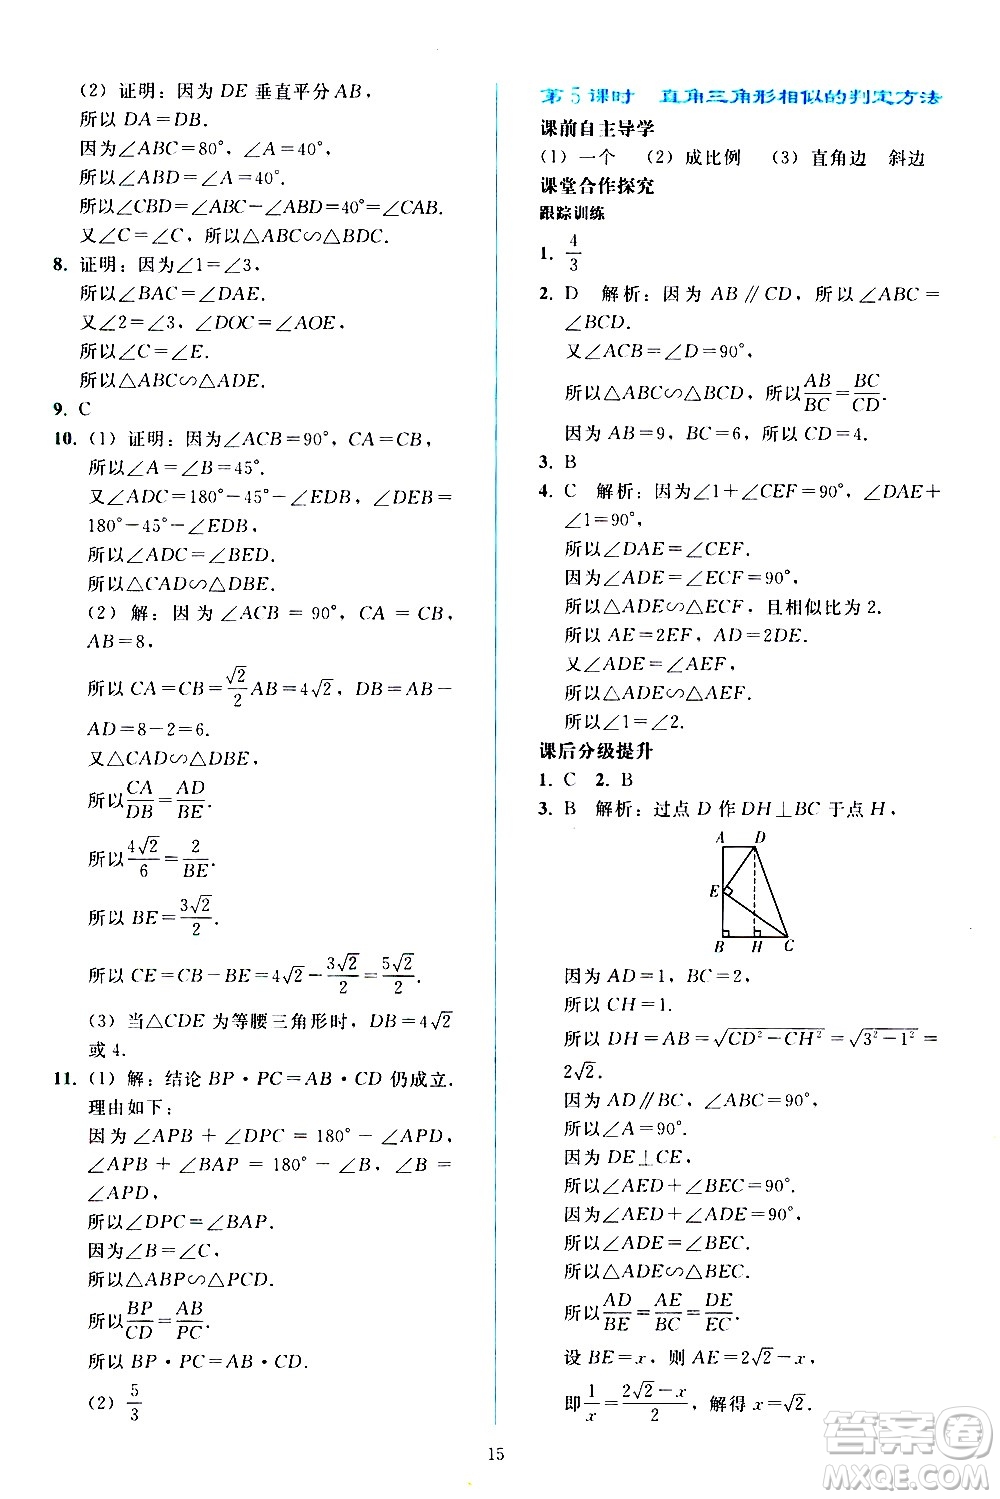 (2) 证明:因为 DE 垂直平分 AB,
所以 DA=DB.
因为∠ABC=80°,∠A=40°.
所以∠ABD=∠A=40°.
所以∠CBD=∠ABC-∠ABD=40°=∠CAB.
又∠C=∠C,所以△ABC∽△BDC.
8. 证明:因为∠1=∠3,
所以∠BAC=∠DAE.
又∠2=∠3,∠DOC=∠AOE,
所以∠C=∠E.
所以△ABC∽△ADE.
9. C
10. (1) 证明:因为∠ACB=90°,CA=CB,
所以∠A=∠B=45°.
又∠ADC=180°-45°-∠EDB,∠DEB=
180°-45°-∠EDB,
所以∠ADC=∠BED.
所以△CAD∽△DBE.
(2) 解:因为∠ACB=90°,CA=CB,
AB=8,
所以 CA=CB=√2/2 AB=4√2,DB=AB-
AD=8-2=6.
又△CAD∽△DBE,
所以 CA/DB=AD/BE.
所以 4√2/6=2/BE.
所以 BE=3√2/2.
所以 CE=CB-BE=4√2-3√2/2=5√2/2.
(3) 当△CDE 为等腰三角形时,DB=4√2
或 4.
11. (1) 解:结论 BP·PC=AB·CD 仍成立.
理由如下:
因为∠APB+∠DPC=180°-∠APD,
∠APB+∠BAP=180°-∠B,∠B=
∠APD,
所以∠DPC=∠BAP.
因为∠B=∠C,
所以△ABP∽△PCD.
所以 BP/CD=AB/PC.
所以 BP·PC=AB·CD.
(2) 5/3
第5课时 直角三角形相似的判定方法
课前自主导学
(1) 一个 (2) 成比例 (3) 直角边 斜边
课堂合作探究
跟踪训练
1. 4/3
2. D 解析:因为 AB∥CD,所以∠ABC=
∠BCD.
又∠ACB=∠D=90°,
所以△ABC∽△BCD,所以 AB/BC=BC/CD.
因为 AB=9,BC=6,所以 CD=4.
3. B
4. C 解析:因为∠1+∠CEF=90°,∠DAE+
∠1=90°,
所以∠DAE=∠CEF.
因为∠ADE=∠FCE=90°,
所以△ADE∽△ECF,且相似比为 2.
所以 AE=2EF,AD=2DE.
又∠ADE=∠AEF,
所以△ADE∽△AEF.
所以∠1=∠2.
课后分级提升
1. C 2. B
3. B 解析:过点 D 作 DH⊥BC 于点 H,
A D
E
B H C
因为 AD=1,BC=2,
所以 CH=1.
所以 DH=AB=√(CD²-CH²)=√(3²-1²)=
2√2.
因为 AD∥BC,∠ABC=90°,
所以∠A=90°.
因为 DE⊥CE,
所以∠AED+∠BEC=90°.
因为∠AED+∠ADE=90°,
所以∠ADE=∠BEC.
所以△ADE∽△BEC.
所以 AD/BE=AE/BC=DE/EC.
设 BE=x,则 AE=2√2-x,
即 1/x=(2√2-x)/2,解得 x=√2.
15
答案圈
MXQE.COM